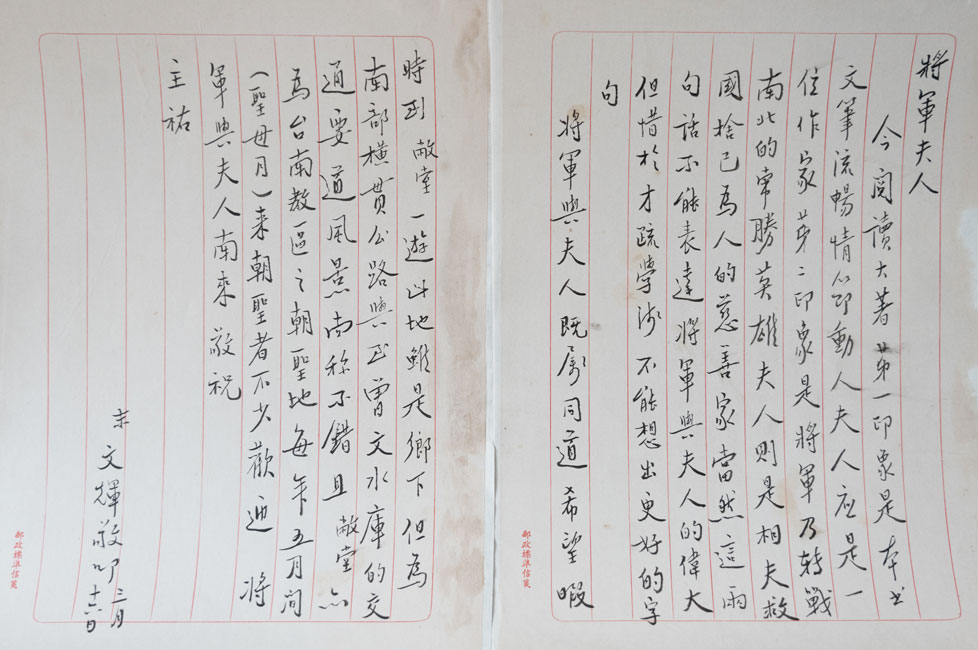 將軍夫人
今閱讀大著第一印象是本书
文筆流暢情节動人夫人应是一
位作家第二印象是將軍乃轉戰
南北的常勝英雄夫人則是相夫救
國捨己為人的慈善家當然這兩
句話不能表達將軍與夫人的偉大
但惜於才疏學淺不能想出更好的字
句
將軍與夫人既屬同道希望暇
時到敝堂一遊此地雖是鄉下但為
南部橫貫公路與到曾文水庫的交
通要道風景尚称不錯且敝堂亦
為台南教區之朝聖地每年五月間
(聖母月)来朝聖者不少歡迎將
軍與夫人南來敬祝
主祐
末
文輝敬叩三月
十六日
郵政標準信箋
郵政標準信箋